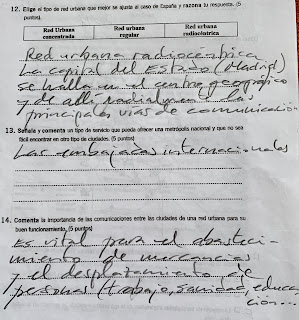 12. Elige el tipo de red urbana que mejor se ajusta al caso de España y razona tu respuesta. (5
puntos).
Red urbana concentrada Red urbana regular Red urbana radiocéntrica
Red urbana radiocéntrica
La capital del Estado (Madrid)
se halla en el centro geográfico
y de allí radialmente las
principales vías de comunicación
13. Señala y comenta un tipo de servicio que pueda ofrecer una metrópolis nacional y que no sea
fácil encontrar en otro tipo de ciudades. (5 puntos)
Las embajadas internacionales
14. Comenta la importancia de las comunicaciones entre las ciudades de una red urbana para su
buen funcionamiento. (5 puntos)
Es vital para el abasteci-
miento de mercancías
y el desplazamiento de
personas (trabajo, sanidad, educa
ción...